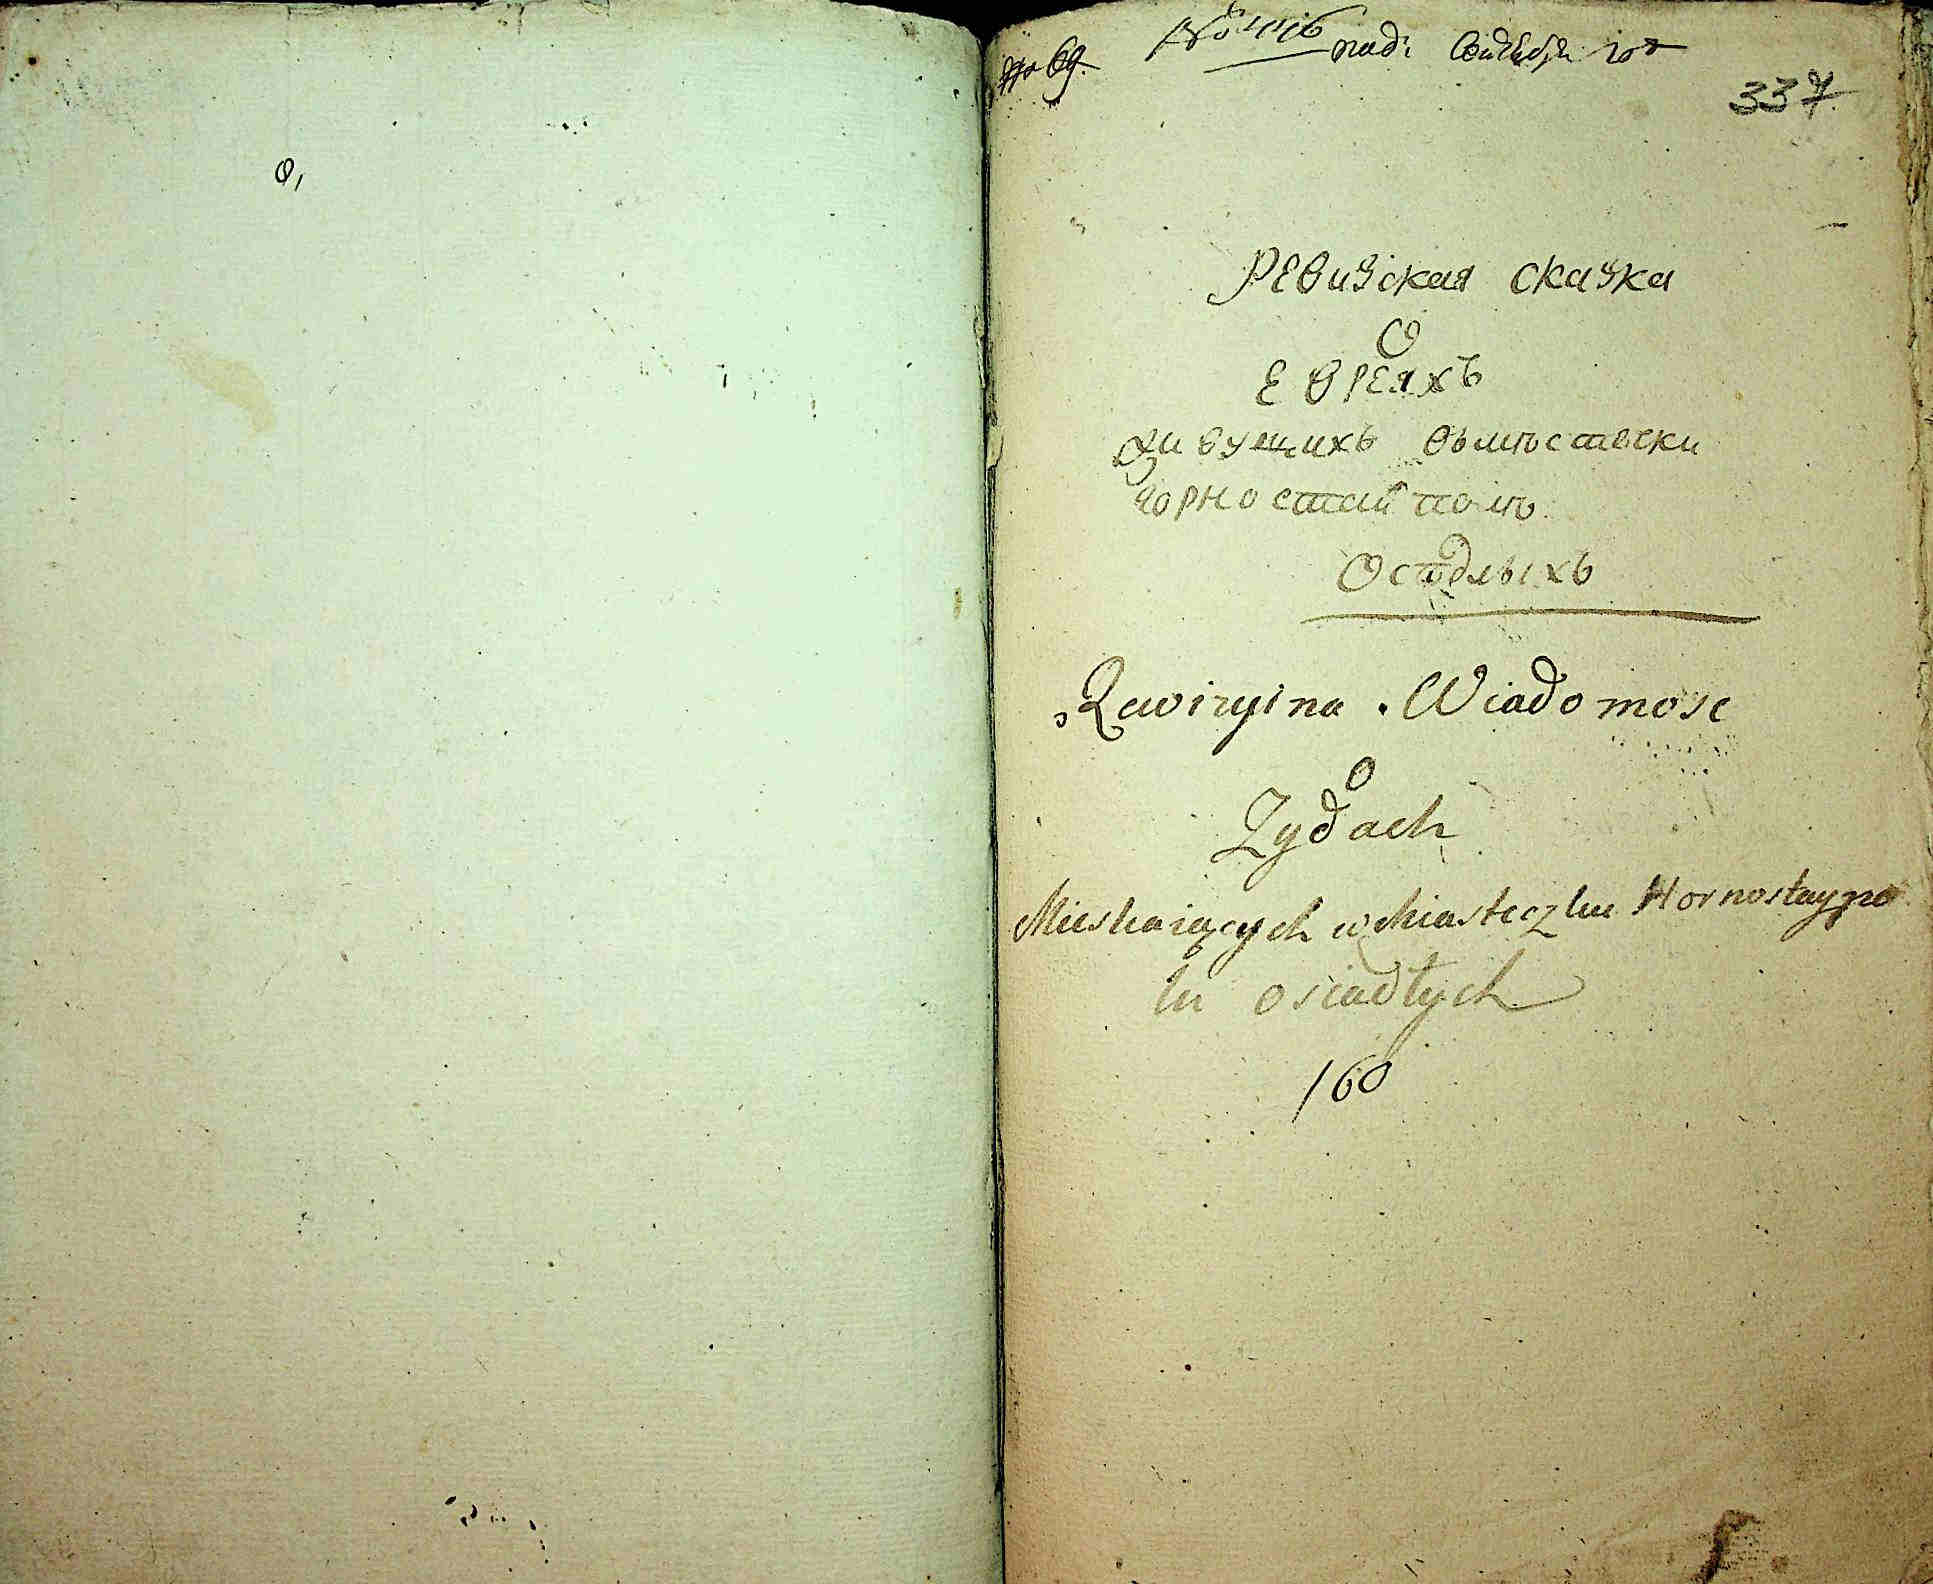 № 69.
№ 446 под: Сентября 10го
337
Ревизская сказка
О
Евреяхъ
живущихъ въместечки
горностайполъ
Оседлыхъ
Rewizyina Wiadomosc
O
Zydach
Mieskaiących w Miasteczku Hornostaypo
lu osiadłych
160